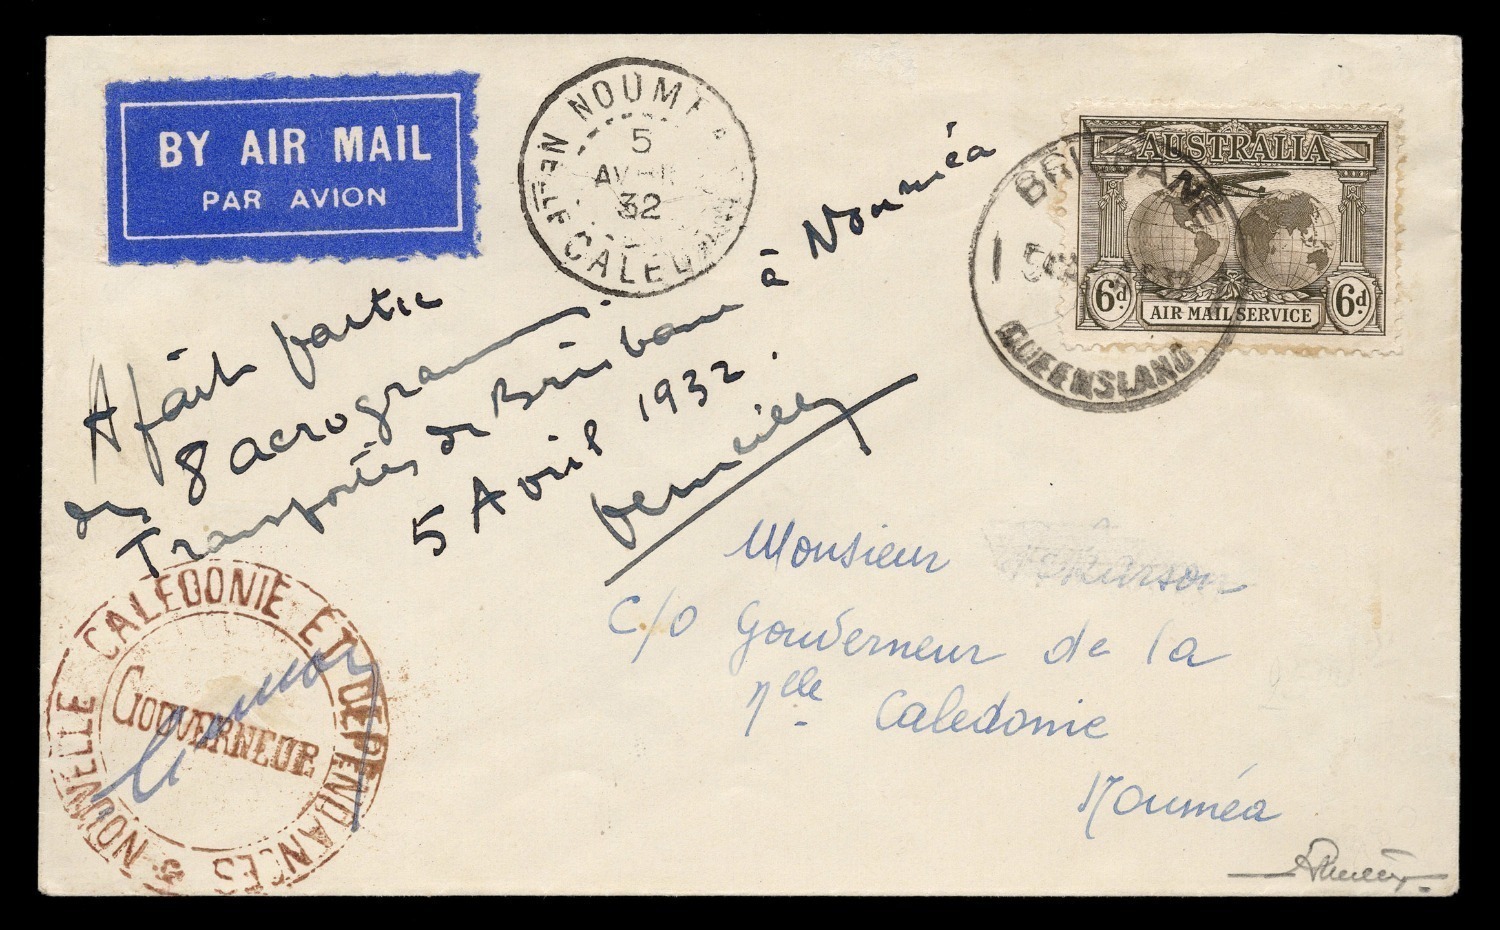 BY AIR MAIL
PAR AVION
NOUMEA
5
AVRIL
32
Nelle CALEDONIE
AUSTRALIA
6d
6d
AIR MAIL SERVICE
BRISBANE
QUEENSLAND
A fait partie
des 8 aerogrammes
Transportés de Brisbane à Nouméa
5 Avril 1932.
Verneilh
Monsieur
c/o Gouverneur de la
Nlle Caledonie
Nouméa
NOUVELLE CALEDONIE ET DEPENDANCES
GOUVERNEUR